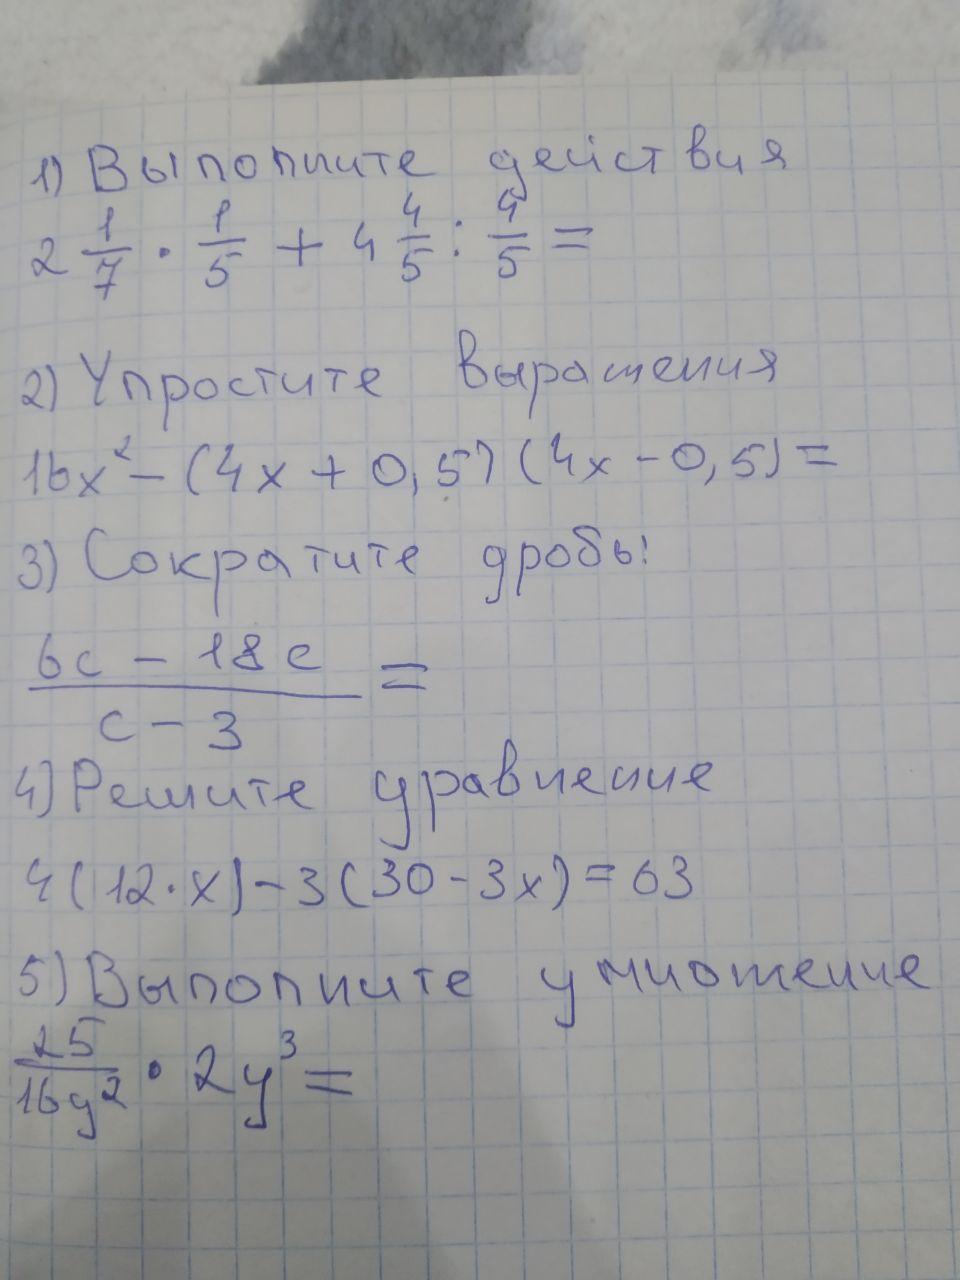 1) Выполните действия
2 1/7 · 1/5 + 4 4/5 : 4/5 =
2) Упростите выражения
16x² - (4x + 0,5) (4x - 0,5) =
3) Сократите дробы
6c - 18c / c - 3 =
4) Решите уравнение
4(12·x) - 3(30 - 3x) = 63
5) Выполните умножение
25/16y² · 2y³ =